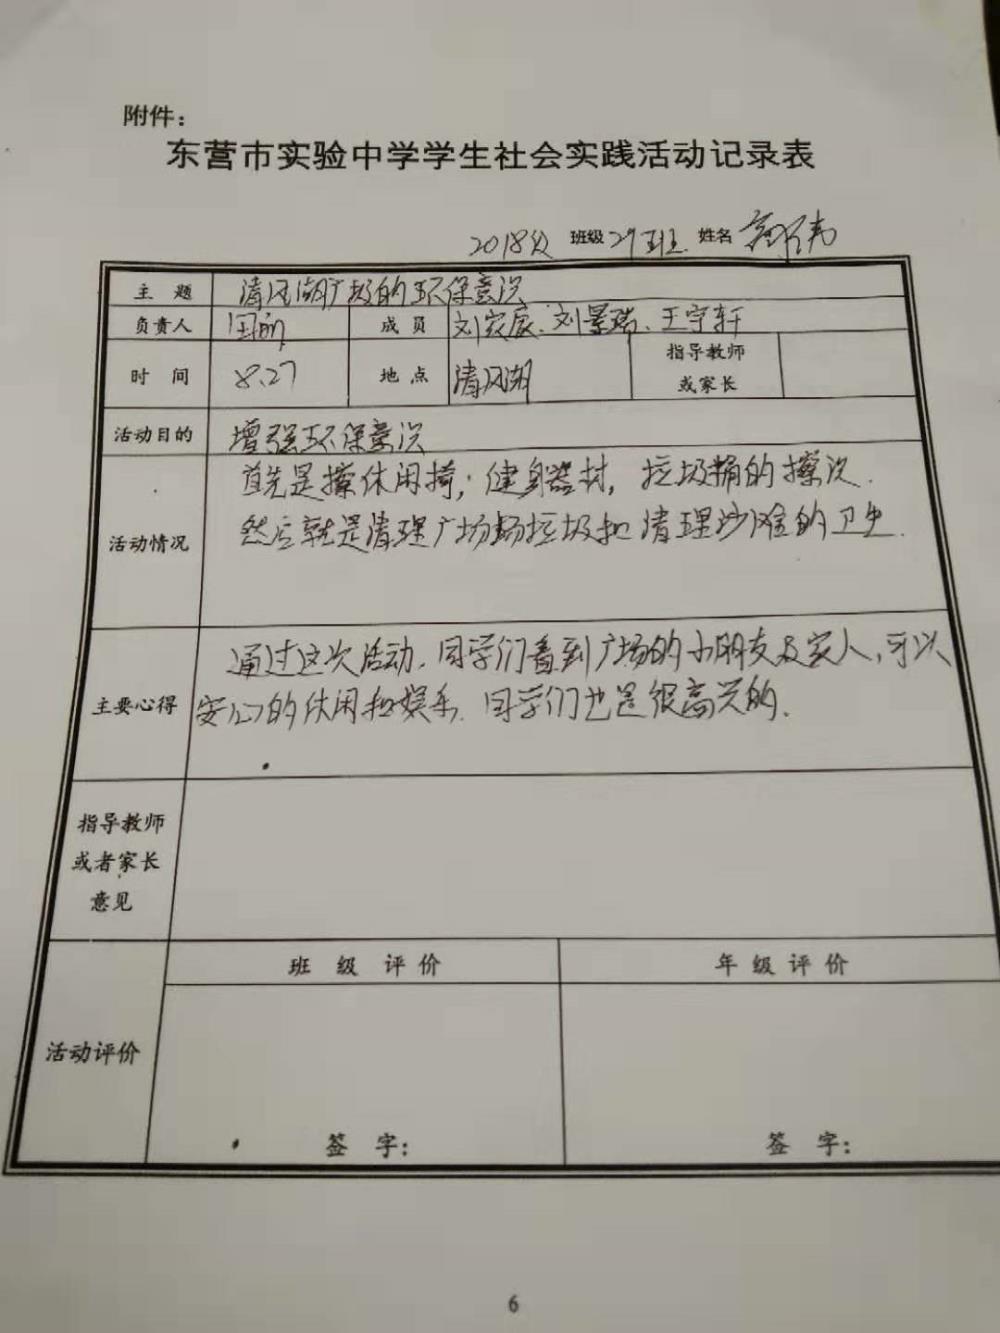 附件：
东营市实验中学学生社会实践活动记录表
2018级 班级 29班 姓名
主 题 清风湖广场的环保意识
负责人 国 成 员 刘家宸、刘景瑞、王宇轩
时 间 8.27 地 点 清风湖 指导教师
或家长
活动目的 增强环保意识
活动情况 首先是擦休闲椅；健身器材，垃圾桶的擦洗.
然后就是清理广场场垃圾和清理沙滩的卫生.
主要心得 通过这次活动，同学们看到广场的小朋友及家人，可以
安心的休闲和娱乐.同学们也是很高兴的.
指导教师
或者家长
意见
活动评价
班 级 评 价 年 级 评 价
签 字： 签 字：
6